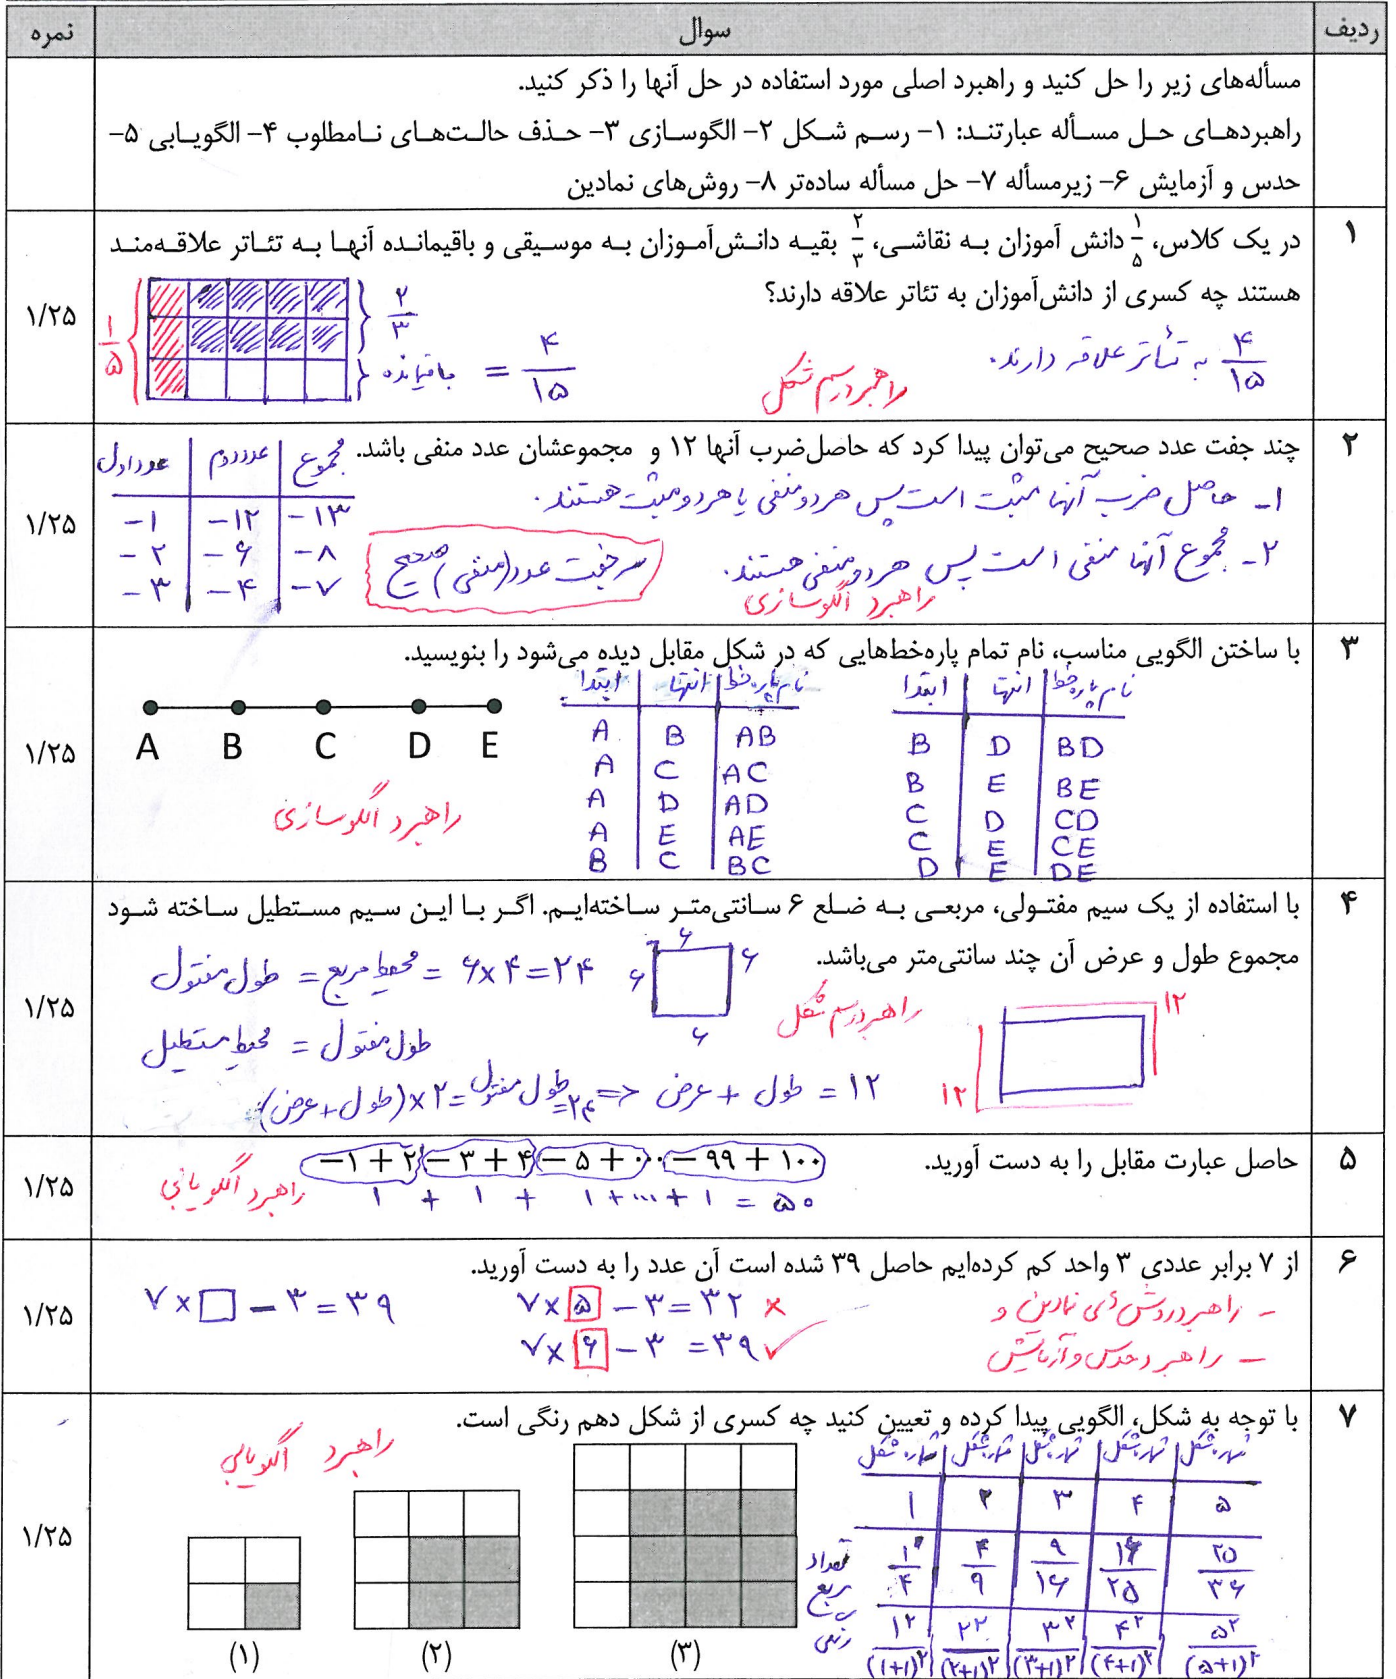 ردیف سوال نمره
مسأله‌های زیر را حل کنید و راهبرد اصلی مورد استفاده در حل آنها را ذکر کنید.
راهبردهای حل مسأله عبارتند: ۱- رسم شکل ۲- الگوسازی ۳- حذف حالت‌های نامطلوب ۴- الگویابی ۵-
حدس و آزمایش ۶- زیرمسأله ۷- حل مسأله ساده‌تر ۸- روش‌های نمادین
۱ در یک کلاس، ۱/۵ دانش آموزان به نقاشی، ۲/۳ بقیه دانش‌آموزان به موسیقی و باقیمانده آنها به تئاتر علاقه‌مند
هستند چه کسری از دانش‌آموزان به تئاتر علاقه دارند؟
۱/۲۵
۴/۱۵ به تئاتر علاقه دارند.
راهبرد رسم شکل
۱/۵
۲/۳
باقیمانده = ۴/۱۵
۲ چند جفت عدد صحیح می‌توان پیدا کرد که حاصل‌ضرب آنها ۱۲ و مجموعشان عدد منفی باشد.
۱/۲۵
۱- حاصل ضرب آنها مثبت است پس هر دو منفی یا هر دو مثبت هستند.
۲- مجموع آنها منفی است پس هر دو منفی هستند.
راهبرد الگوسازی
سه جفت عدد (منفی) صحیح
عدد اول | عدد دوم | مجموع
-۱ | -۱۲ | -۱۳
-۲ | -۶ | -۸
-۳ | -۴ | -۷
۳ با ساختن الگویی مناسب، نام تمام پاره‌خط‌هایی که در شکل مقابل دیده می‌شود را بنویسید.
۱/۲۵
A B C D E
راهبرد الگوسازی
ابتدا | انتها | نام پاره خط
A | B | AB
A | C | AC
A | D | AD
A | E | AE
B | C | BC
ابتدا | انتها | نام پاره خط
B | D | BD
B | E | BE
C | D | CD
C | E | CE
D | E | DE
۴ با استفاده از یک سیم مفتولی، مربعی به ضلع ۶ سانتی‌متر ساخته‌ایم. اگر با این سیم مستطیل ساخته شود
مجموع طول و عرض آن چند سانتی‌متر می‌باشد.
۱/۲۵
۶ ۶ ۶ ۶
طول مفتول = محیط مربع = ۶×۴=۲۴
راهبرد رسم شکل
۱۲
۱۲
طول مفتول = محیط مستطیل
(طول+عرض)×۲=طول مفتول=۲۴ => طول + عرض = ۱۲
۵ حاصل عبارت مقابل را به دست آورید.
-۱+۲-۳+۴-۵+...-۹۹+۱۰۰
۱ + ۱ + ۱+...+۱ = ۵۰
راهبرد الگویابی
۱/۲۵
۶ از ۷ برابر عددی ۳ واحد کم کرده‌ایم حاصل ۳۹ شده است آن عدد را به دست آورید.
۱/۲۵
۷×□-۳=۳۹
۷×۵-۳=۳۲ ×
۷×۶-۳=۳۹ ✓
- راهبرد روش‌های نمادین و
- راهبرد حدس و آزمایش
۷ با توجه به شکل، الگویی پیدا کرده و تعیین کنید چه کسری از شکل دهم رنگی است.
۱/۲۵
راهبرد الگویابی
(۱) (۲) (۳)
شماره شکل | شماره شکل | شماره شکل | شماره شکل | شماره شکل
۱ | ۲ | ۳ | ۴ | ۵
تعداد مربع رنگی
۱/۴ | ۴/۹ | ۹/۱۶ | ۱۶/۲۵ | ۲۵/۳۶
۱²/(۱+۱)² | ۲²/(۲+۱)² | ۳²/(۳+۱)² | ۴²/(۴+۱)² | ۵²/(۵+۱)²